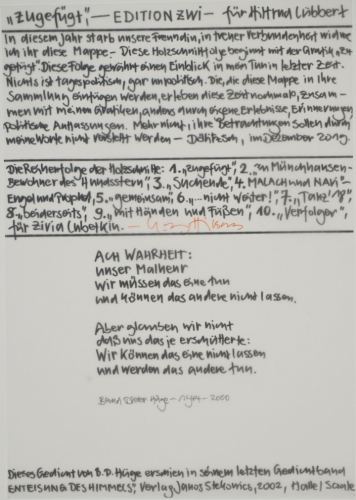 "zugefügt", — EDITION ZWI — für Hiltrud Lübbert
In diesem Jahr starb unsere Freundin, in treuer Verbundenheit widme
ich ihr diese Mappe – Diese Holzschnittfolge beginnt mit der Grafik „zu-
gefügt". Diese Folge gewährt einen Einblick in mein Tun in letzter Zeit.
Nichts ist tagespolitisch, gar unpolitisch. Die, die diese Mappe in ihre
Sammlung einfügen werden, erleben diese Zeit normale, zusam-
men mit meinen Grafiken, anders durch eigene Erlebnisse, Erinnerungen,
politische Auffassungen. Mehr nicht, ihre Betrachtungen sollen durch
meine Worte nicht verstellt werden – im Dezember 2019.
Die Reihenfolge der Holzschnitte: 1. „zugefügt", 2. „zu Münchhausen-
Bewohner des Hundsstern", 3. „Suchende", 4. MALACH und NAVI" –
Engel und Prophet, 5. „gemeinsam", 6. „… nicht weiter!", 7. „Tanz",
8. „beiderseits", 9. „mit Händen und Füßen", 10. „Verfolger",
für Zivia Lubetkin. –
ACH WAHRHEIT:
unser Malheur
Wir müssen das eine tun
und können das andere nicht lassen.
Aber glauben wir nicht
daß uns das je erschütterte:
Wir können das eine nicht lassen
und werden das andere tun.
– 2000
Dieses Gedicht von B.D. Hüge erschien in seinem letzten Gedichtband
ENTEISUNG DES HIMMELS", Verlag Janos Stekovics, 2002, Halle/Saale